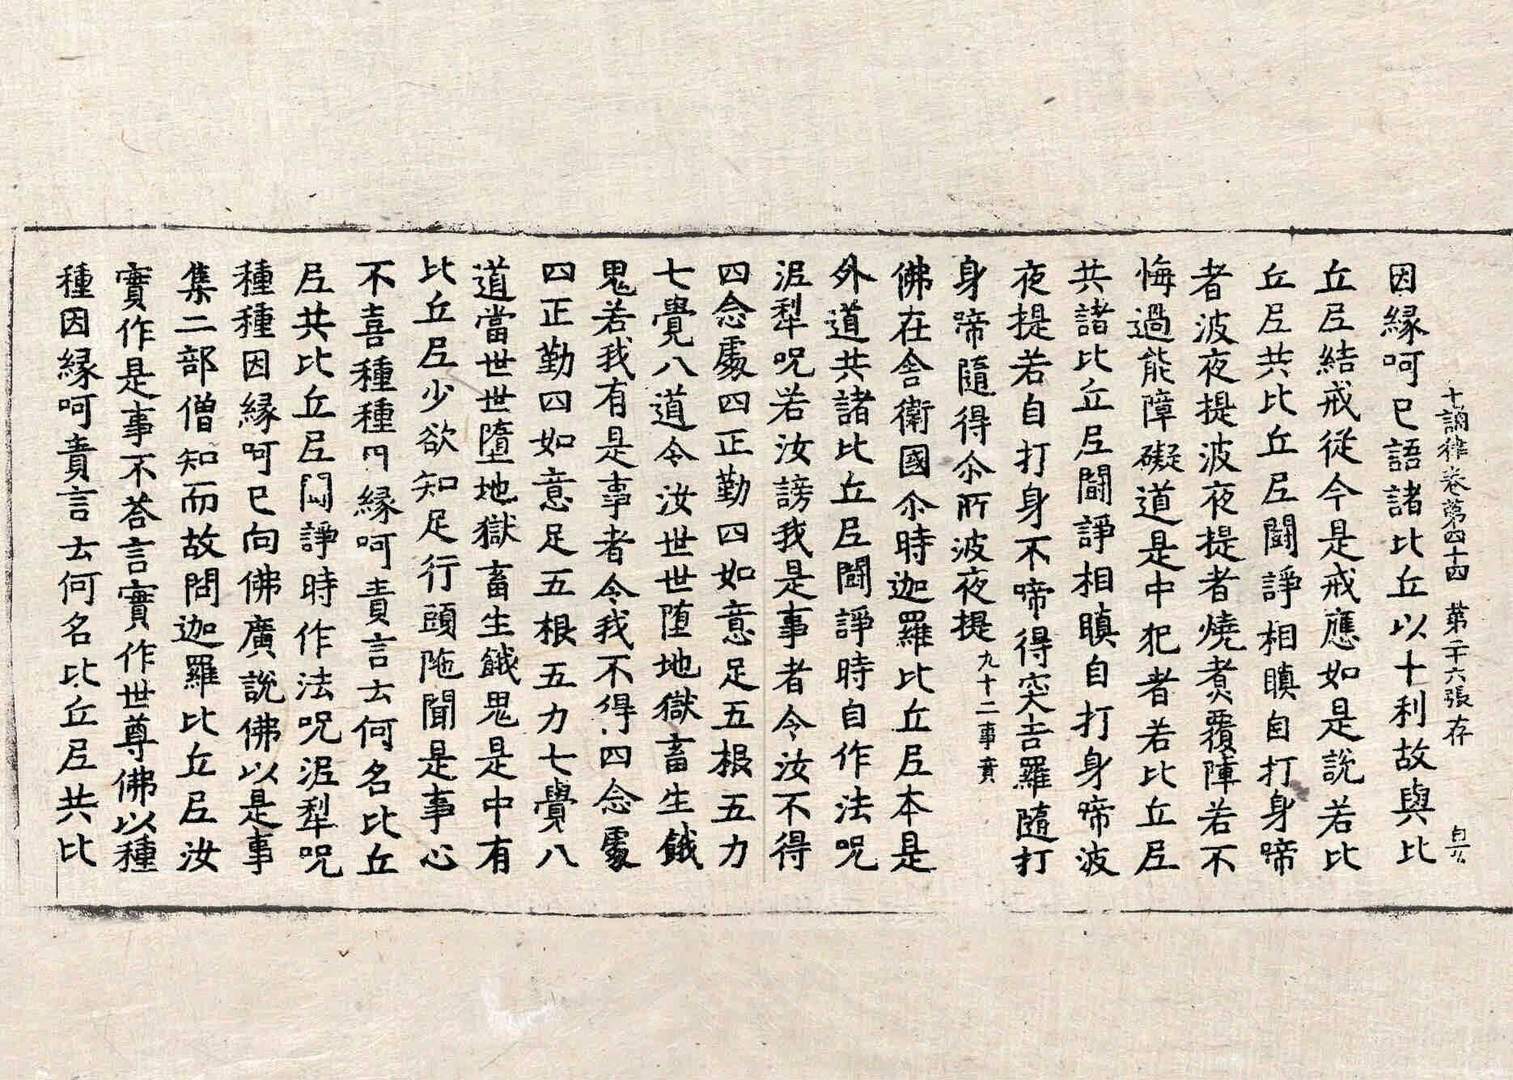 十誦律卷第四十四 第二十六張 存
因縁呵已語諸比丘以十利故與比
丘尼結戒從今是戒應如是說若比
丘尼共比丘尼鬪諍相瞋自打身啼
者波夜提波夜提者燒煑覆障若不
悔過能障礙道是中犯者若比丘尼
共諸比丘尼鬪諍相瞋自打身啼波
夜提若自打身不啼得突吉羅隨打
身啼隨得尒所波夜提九十二事竟
佛在舍衛國尒時迦羅比丘尼本是
外道共諸比丘尼鬪諍時自作法呪
泥犁呪若汝謗我是事者令汝不得
四念處四正勤四如意足五根五力
七覺八道令汝世世堕地獄畜生餓
鬼若我有是事者令我不得四念處
四正勤四如意足五根五力七覺八
道當世世墮地獄畜生餓鬼是中有
比丘尼少欲知足行頭陁聞是事心
不喜種種因縁呵責言云何名比丘
尼共比丘尼鬪諍時作法呪泥犁呪
種種因縁呵已向佛廣說佛以是事
集二部僧知而故問迦羅比丘尼汝
實作是事不荅言實作世尊佛以種
種因縁呵責言云何名比丘尼共比